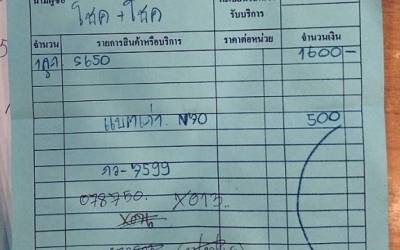 นามผู้ซื้อ โชค + โชค
รับบริการ
จำนวน รายการสินค้าหรือบริการ ราคาต่อหน่วย จำนวนเงิน
1ลูก S650 1600-
แบตเก่า N70 500
ภว-7599
078750. X013.